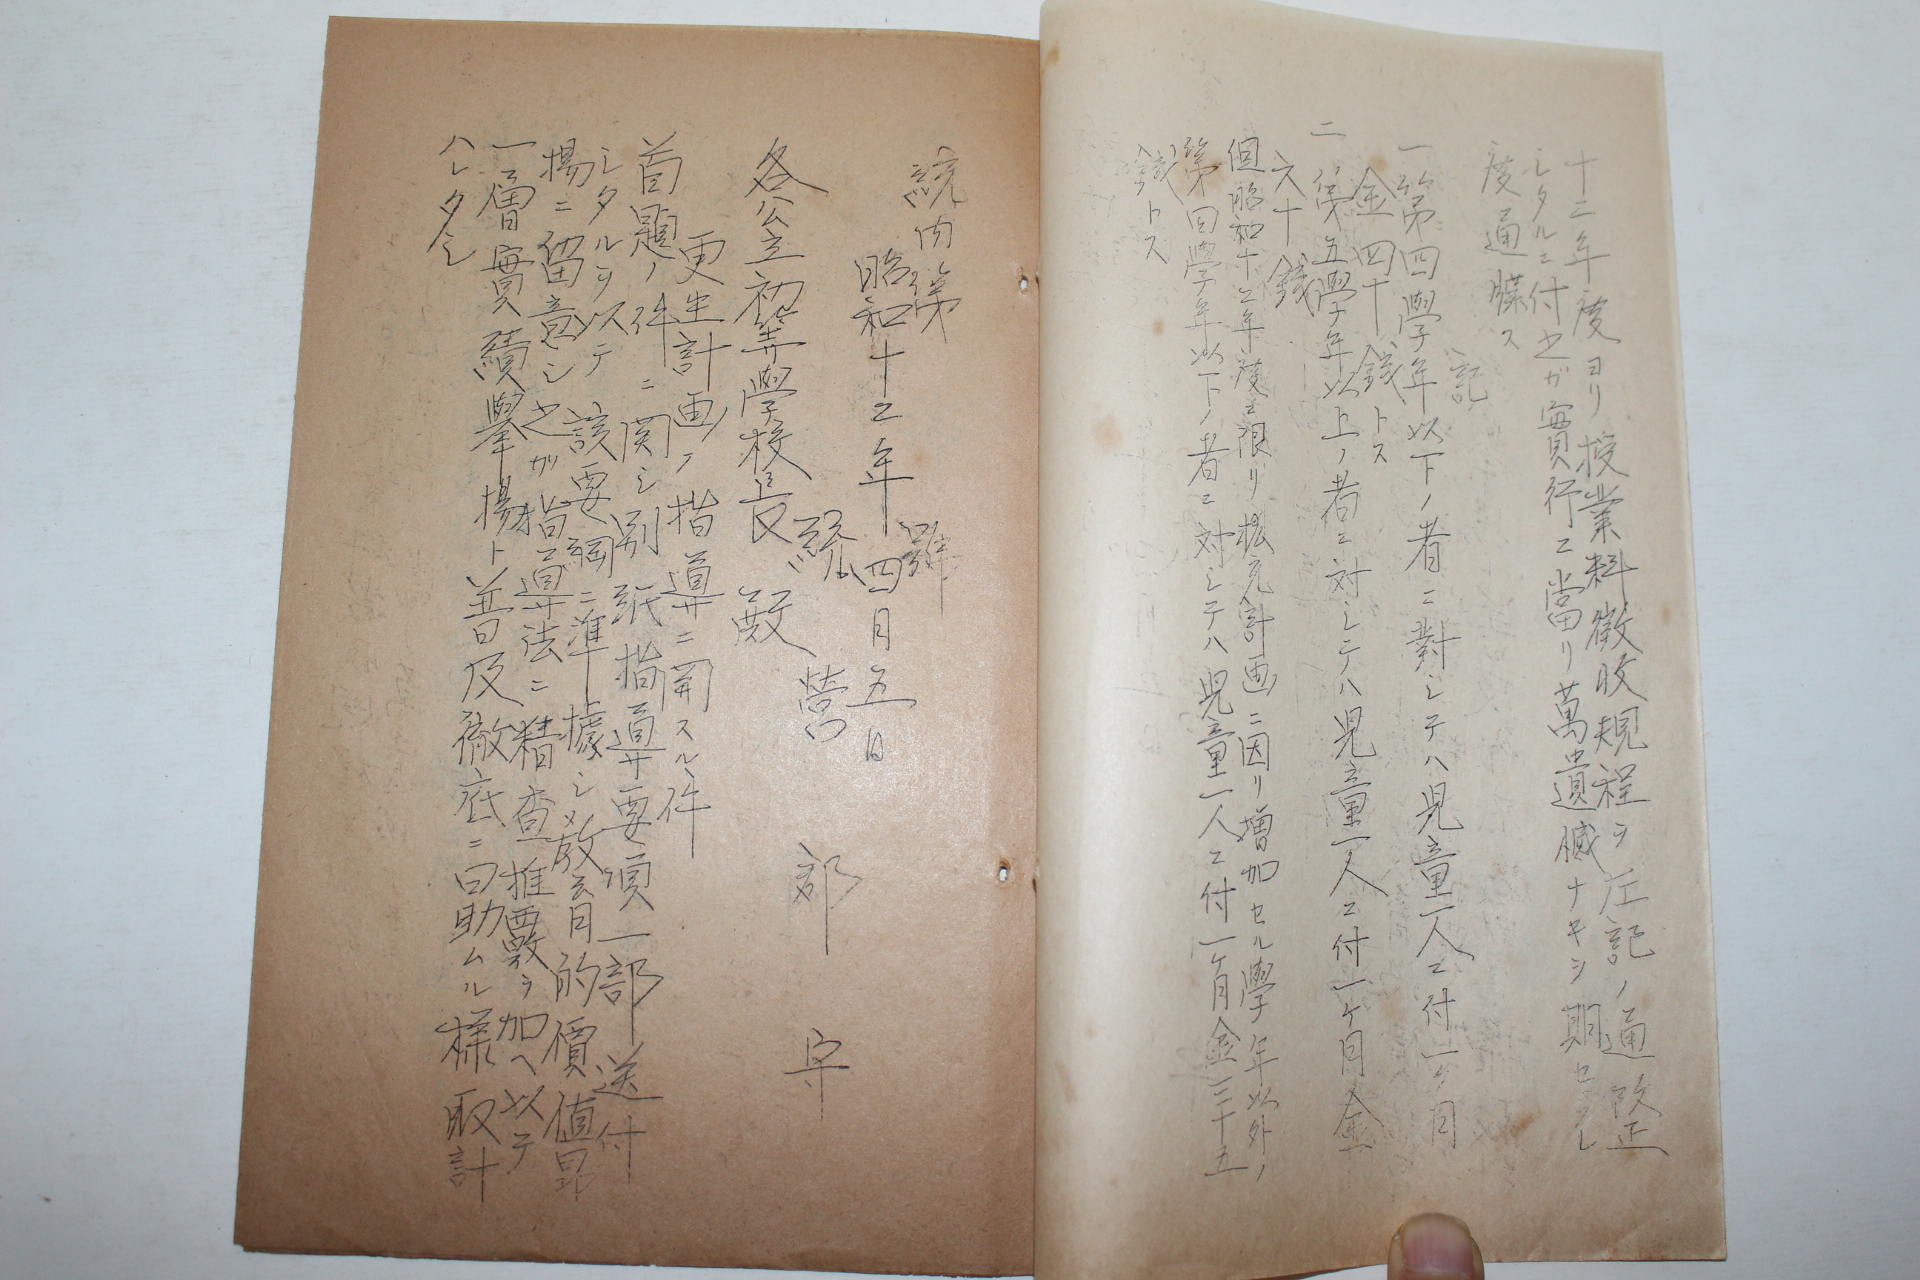 十二年度ヨリ授業料徴收規程ヲ左記ノ通改正
シタルニ付之ガ實行ニ當リ萬遺憾ナキヲ期セラレ
度通牒ス
記
一第四學年以下ノ者ニ對シテハ児童一人ニ付一ケ月
金四十錢トス
二第五學年以上ノ者ニ対シテハ児童一人ニ付一ケ月金
六十錢
但昭和十二年度ニ限リ拡充計画ニ因リ増加セル學年以外ノ
第四學年以下ノ者ニ対シテハ児童一人ニ付一ケ月金三十五
錢トス
統内第 號
昭和十二年四月五日
統營郡守
各公立初等學校長殿
更生計画ノ指導ニ関スル件
首題ノ件ニ関シ別紙指導要項一部送付
シタルヲ以テ該要綱ニ準據シメ教育的價値昂
揚ニ留意シ之ガ指導法ニ精査推敲ヲ加ヘ以テ
一層實績擧揚ト普及徹底ニ努ムル樣取計
ハレタシ